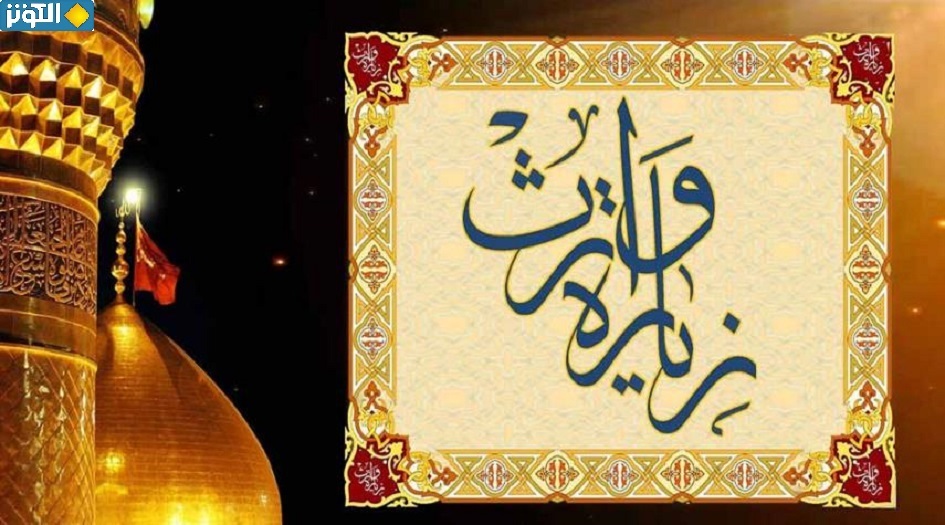 الكوثر
زيارة وارث